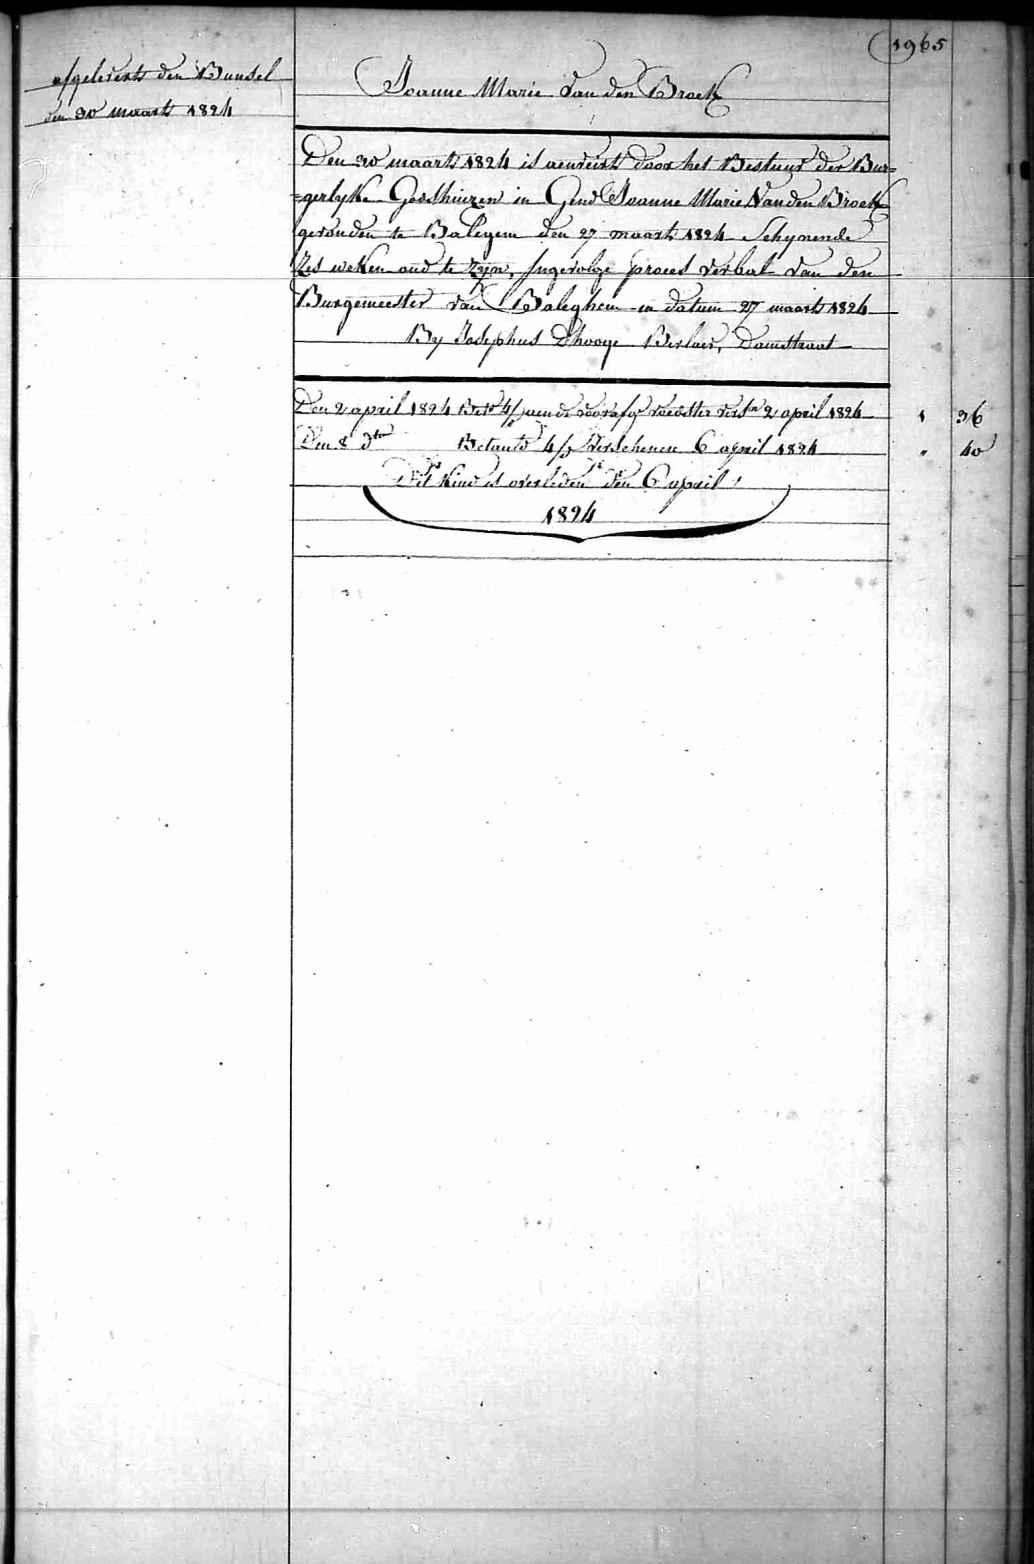 1965
afgeleverts den Bundel
den 30 maarts 1824
Joanne Marie Van den Broeck
Den 30 maarts 1824 is aenveirt door het Bestuur der Bur=
=gerlyke Godshuizen in Gend Joanne Marie Van den Broeck
gevonden te Balegem den 27 maarts 1824 Schynende
Zes weken oud te zyn, Ingevolge proces verbal van den
Burgemeester van Baleghem in datum 27 maarts 1824
By Josephus Dhooge Berlaer, Damstraat
Den 2 april 1824 Bet. 4/ aen de voorafg. voedster vers.n 2 april 1824 1 36
Den 8 d.to Betaeld 4/ Verschenen 6 april 1824 " 40
Dit Kind is overleden den 6 april
1824